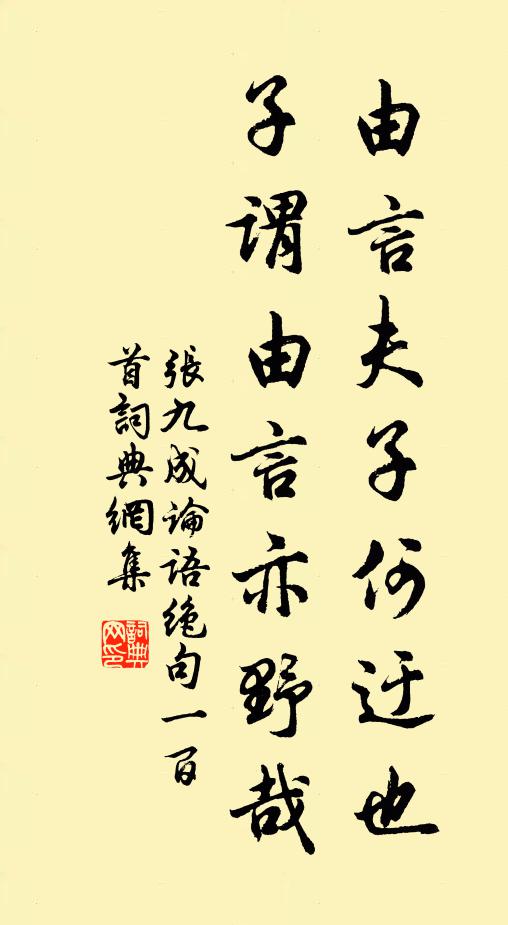 由言夫子何迂也
子謂由言亦野哉
張九成論語絶句一百
首詞典網集
詞典網印